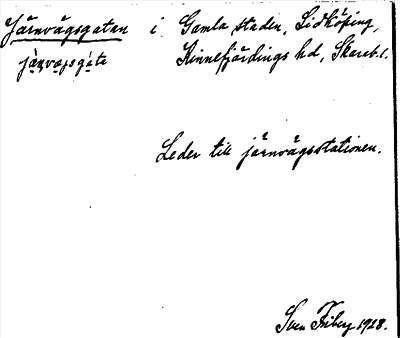 Järnvägsgatan i Gamla staden, Lidköping,
järnvägsgata Kinnefjärdings hd, Skarab.l.
Leder till järnvägsstationen.
Sven Friberg 1928.